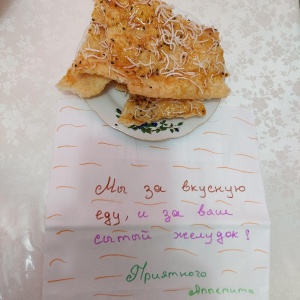 Мы за вкусную
еду, и за ваш
сытый желудок!
Приятного
Аппетита